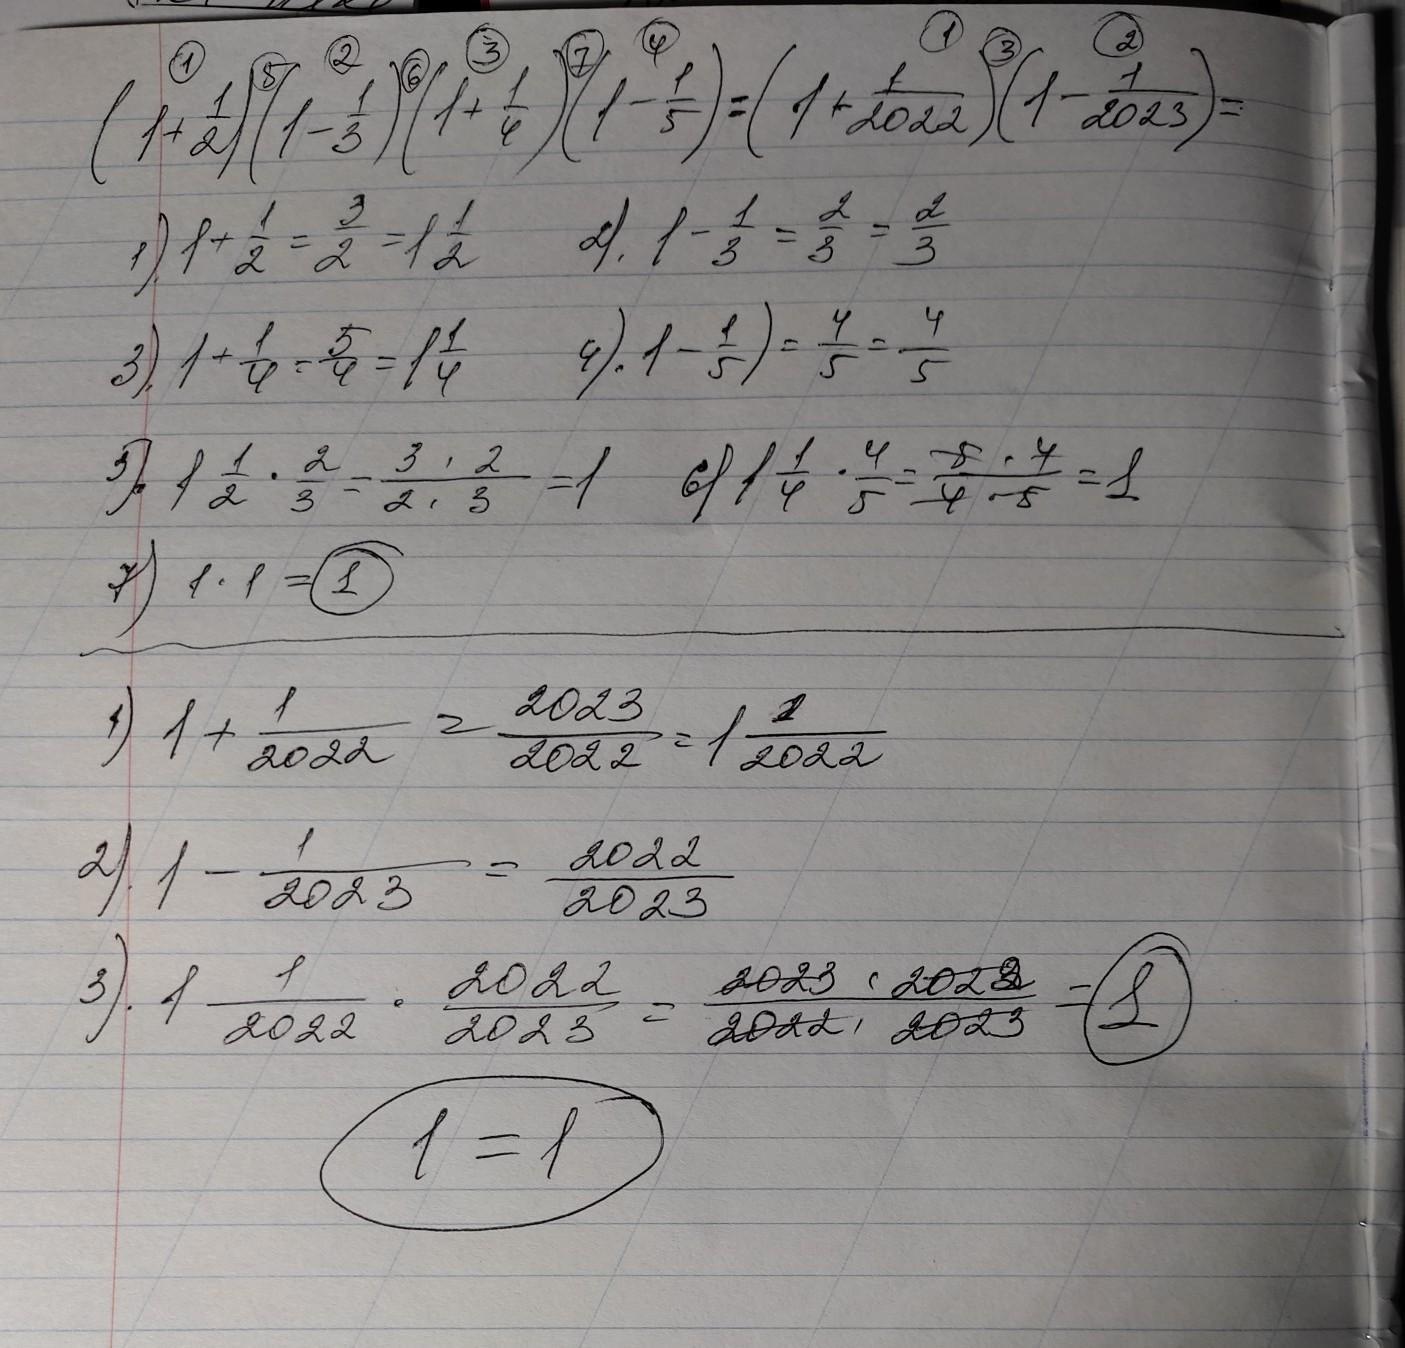 ① ⑤ ② ⑥ ③ ⑦ ④ ① ③ ②
(1+1/2)(1-1/3)(1+1/4)(1-1/5)=(1+1/2022)(1-1/2023)=
1) 1+1/2=3/2=1 1/2 2). 1-1/3=2/3=2/3
3). 1+1/4=5/4=1 1/4 4). 1-1/5)=4/5=4/5
5). 1 1/2 · 2/3=3·2/2·3=1 6) 1 1/4 · 4/5=5·4/4·5=1
7) 1·1=1
1) 1+1/2022=2023/2022=1 1/2022
2). 1-1/2023=2022/2023
3). 1 1/2022 · 2022/2023=2023·2022/2022·2023=1
1=1